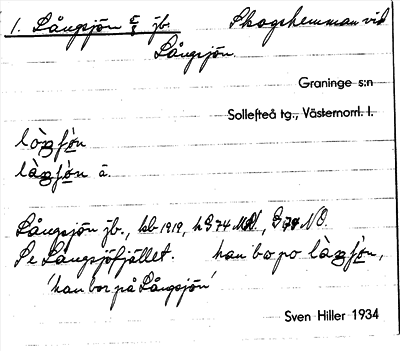 1. Långsjön jb. Skogshemman vid
Långsjön.
Graninge s:n
Sollefteå tg., Västernorrl. l.
Långsjön jb., kb 1919, h G 74
Se Långsjöfjället. han bor po
'han bor på Långsjön'
Sven Hiller 1934